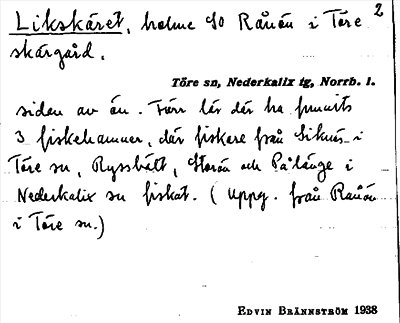 Likskäret, holme SO Rånön i Töre 2
skärgård.
Töre sn, Nederkalix tg, Norrb. l.
sidan av ön. Förr lär där ha funnits
3 fiskehamner, där fiskare från Siknäs i
Töre sn, Ryssbält, Storön och Pålänge i
Nederkalix sn fiskat. (Uppg. från Rånön
i Töre sn.)
EDVIN BRÄNNSTRÖM 1938